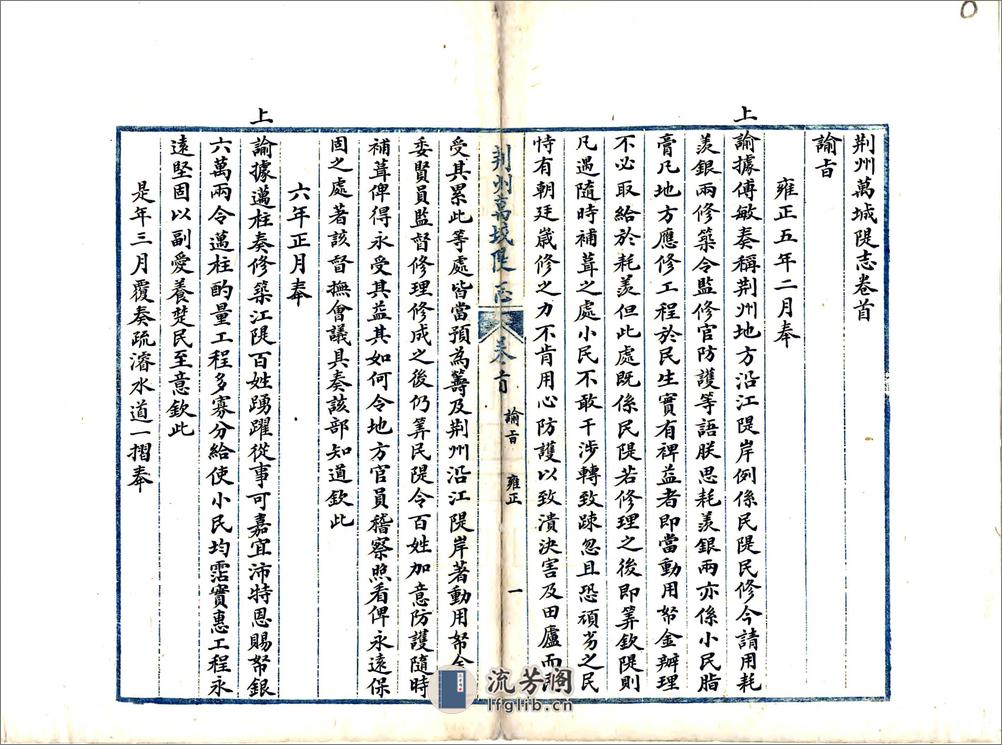 荆州萬城隄志卷首
諭旨
雍正五年二月奉
上諭據傅敏奏稱荆州地方沿江隄岸例係民隄民修今請用耗
羨銀兩修築令監修官防護等語朕思耗羨銀兩亦係小民脂
膏凡地方應修工程於民生實有裨益者即當動用帑金辦理
不必取給於耗羨但此處既係民隄若修理之後即筭欽隄則
凡遇隨時補葺之處小民不敢干涉轉致疎忽且恐頑劣之民
恃有朝廷歲修之力不肯用心防護以致潰決害及田廬而
荆州萬城隄志 卷首 諭旨 雍正 一
受其累此等處皆當預為籌及荆州沿江隄岸著動用帑金
委賢員監督修理修成之後仍筭民隄令百姓加意防護隨時
補葺俾得永受其益其如何令地方官員稽察照看俾永遠保
固之處著該督撫會議具奏該部知道欽此
六年正月奉
上諭據邁柱奏修築江隄百姓踴躍從事可嘉宜沛特恩賜帑銀
六萬兩令邁柱酌量工程多寡分給使小民均霑實惠工程永
遠堅固以副愛養楚民至意欽此
是年三月覆奏疏濬水道一摺奉
流芳閣
lfglib.cn